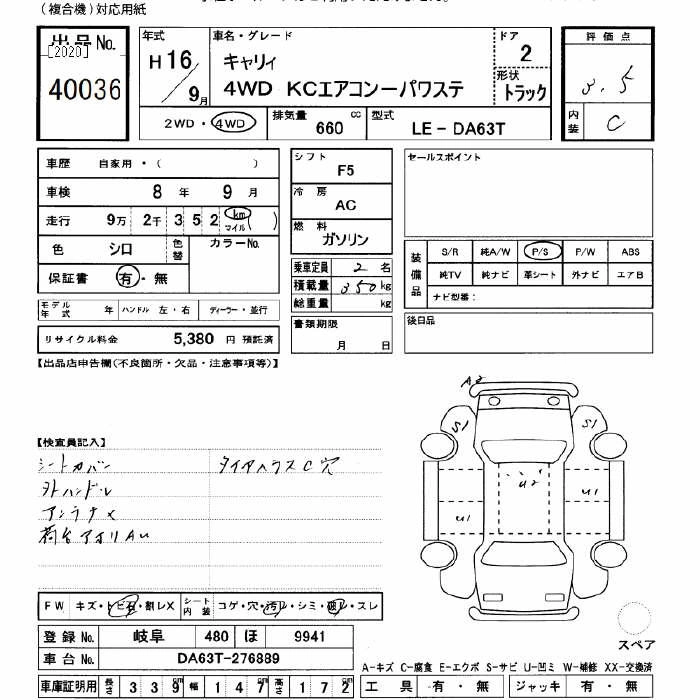 (複合機)対応用紙
出品No.
[2020]
40036
年式
H16/9月
車名・グレード
キャリィ
4WD KCエアコンーパワステ
ドア
2
形状
トラック
2WD・4WD
排気量
660 cc
型式
LE-DA63T
評価点
3.5
内装
C
車歴 自家用・( )
車検 8年 9月
走行 9万 2千 3 5 2 km マイル ( )
色 シロ 色替 カラーNo.
保証書 有・無
モデル年式 年 ハンドル 左・右 ディーラー・並行
リサイクル料金 5,380円 預託済
シフト
F5
冷房
AC
燃料
ガソリン
乗車定員 2名
積載量 350kg
総重量 kg
書類期限
月 日
セールスポイント
装備品
S/R 純A/W P/S P/W ABS
純TV 純ナビ 革シート 外ナビ エアB
ナビ型番:
後日品
【出品店申告欄(不良箇所・欠品・注意事項等)】
【検査員記入】
シートカバー
外ハンドル
アンテナX
荷台アオリAU
A2
S1
S1
U2
U1
U1
FW キズ・トビ石・割レX シート内装 コゲ・穴・汚レ・シミ・破レ・スレ
登録No. 岐阜 480 ほ 9941
車台No. DA63T-276889
車庫証明用 長さ 3 3 9 幅 1 4 7 高さ 1 7 2
スペア
A-キズ C-腐食 E-エクボ S-サビ U-凹ミ W-補修 XX-交換済
工具 有・無 ジャッキ 有・無